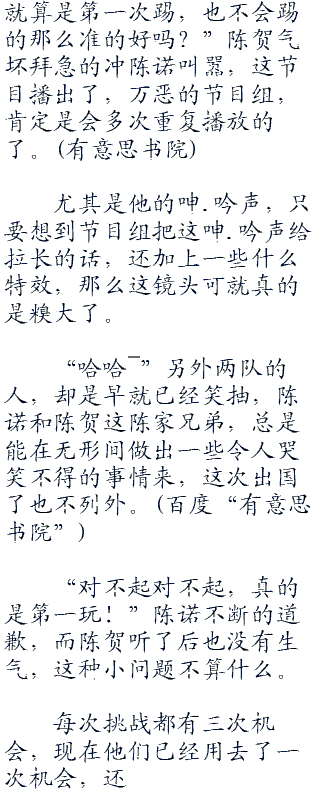 就算是第一次踢，也不会踢
的那么准的好吗？”陈贺气
坏拜急的冲陈诺叫嚣，这节
目播出了，万恶的节目组，
肯定是会多次重复播放的
了。(有意思书院)
尤其是他的呻.吟声，只
要想到节目组把这呻.吟声给
拉长的话，还加上一些什么
特效，那么这镜头可就真的
是糗大了。
“哈哈‾”另外两队的
人，却是早就已经笑抽，陈
诺和陈贺这陈家兄弟，总是
能在无形间做出一些令人哭
笑不得的事情来，这次出国
了也不列外。(百度“有意思
书院”)
“对不起对不起，真的
是第一玩！”陈诺不断的道
歉，而陈贺听了后也没有生
气，这种小问题不算什么。
每次挑战都有三次机
会，现在他们已经用去了一
次机会，还